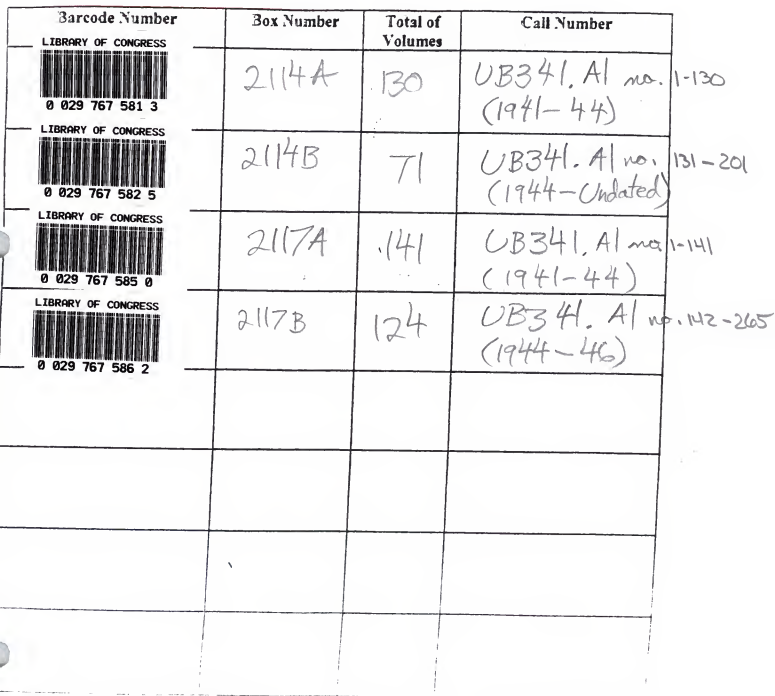 Barcode Number Box Number Total of Volumes Call Number
LIBRARY OF CONGRESS
0 029 767 581 3
2114A 130 UB341.A1 no. 1-130
(1941-44)
LIBRARY OF CONGRESS
0 029 767 582 5
2114B 71 UB341.A1 no. 131-201
(1944-Undated)
LIBRARY OF CONGRESS
0 029 767 585 0
2117A 141 UB341.A1 no. 1-141
(1941-44)
LIBRARY OF CONGRESS
0 029 767 586 2
2117B 124 UB341.A1 no. 142-265
(1944-46)